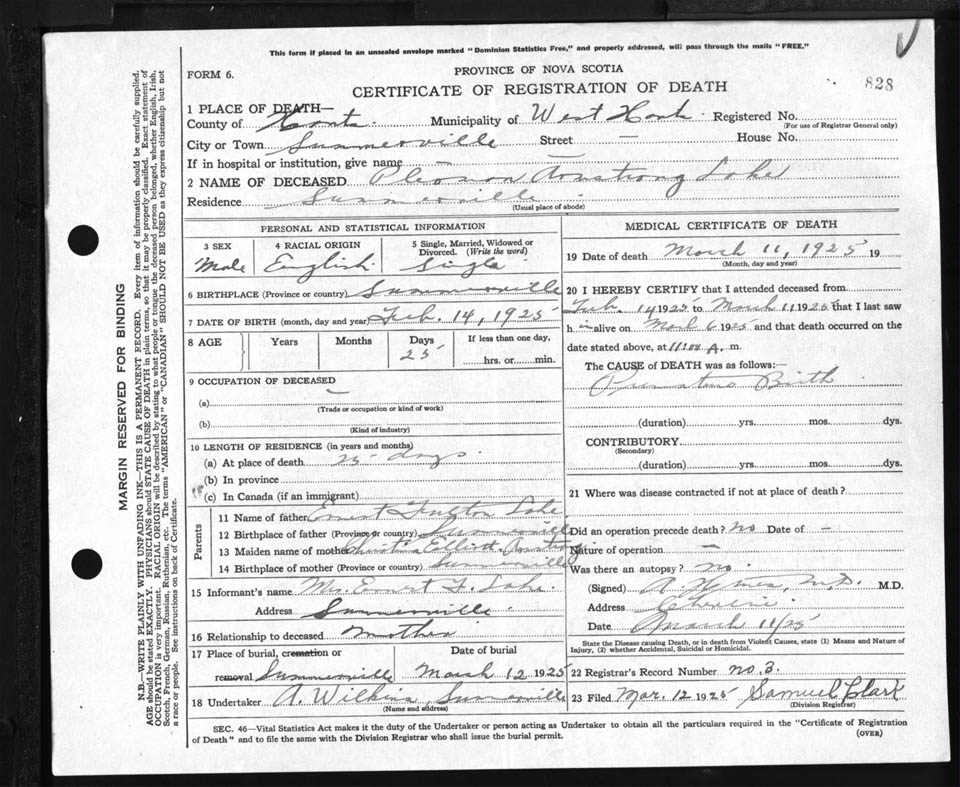 This form if placed in an unsealed envelope marked "Dominion Statistics Free," and properly addressed, will pass through the mails "FREE."
FORM 6.
PROVINCE OF NOVA SCOTIA
CERTIFICATE OF REGISTRATION OF DEATH
828
1 PLACE OF DEATH—
County of Hants Municipality of West Hants Registered No.
(For use of Registrar General only)
City or Town Summerville Street — House No.
If in hospital or institution, give name —
2 NAME OF DECEASED Armstrong Lake
Residence Summerville
(Usual place of abode)
PERSONAL AND STATISTICAL INFORMATION
3 SEX
Male
4 RACIAL ORIGIN
English
5 Single, Married, Widowed or Divorced. (Write the word)
Single
6 BIRTHPLACE (Province or country) Summerville
7 DATE OF BIRTH (month, day and year) Feb. 14, 1925
8 AGE Years Months Days If less than one day,
25 hrs. or min.
9 OCCUPATION OF DECEASED
(a) —
(Trade or occupation or kind of work)
(b)
(Kind of industry)
10 LENGTH OF RESIDENCE (in years and months)
(a) At place of death 25 days
(b) In province
(c) In Canada (if an immigrant)
Parents
11 Name of father Ernest Fulton Lake
12 Birthplace of father (Province or country) Summerville
13 Maiden name of mother Christina Elliott Armstrong
14 Birthplace of mother (Province or country) Summerville
15 Informant's name Mrs Ernest F. Lake
Address Summerville
16 Relationship to deceased Mother
17 Place of burial, cremation or removal Summerville
Date of burial
March 12 1925
18 Undertaker A. Wilkins, Summerville
(Name and address)
MEDICAL CERTIFICATE OF DEATH
19 Date of death March 11, 1925 19
(Month, day and year)
20 I HEREBY CERTIFY that I attended deceased from
Feb. 14 1925 to March 11 1925 that I last saw
h im alive on March 6 1925 and that death occurred on
date stated above, at 11:00 A. m.
The CAUSE of DEATH was as follows:—
Premature Birth
(duration) yrs. mos. dys.
CONTRIBUTORY
(Secondary)
(duration) yrs. mos. dys.
21 Where was disease contracted if not at place of death?
Did an operation precede death? No Date of —
Nature of operation —
Was there an autopsy? No.
(Signed) M.D. M.D.
Address
Date March 11/25
State the Disease causing Death, or in death from Violent Causes, state (1) Means and Nature of Injury, (2) whether Accidental, Suicidal or Homicidal.
22 Registrar's Record Number No. 3.
23 Filed Mar. 12 1925 Samuel Clark
(Division Registrar)
SEC. 46—Vital Statistics Act makes it the duty of the Undertaker or person acting as Undertaker to obtain all the particulars required in the "Certificate of Registration
of Death" and to file the same with the Division Registrar who shall issue the burial permit.
(OVER)
MARGIN RESERVED FOR BINDING
N.B.—WRITE PLAINLY WITH UNFADING INK—THIS IS A PERMANENT RECORD. Every item of information should be carefully supplied.
AGE should be stated EXACTLY. PHYSICIANS should STATE CAUSE OF DEATH in plain terms, so that it may be properly classified. Exact statement of
OCCUPATION is very important. RACIAL ORIGIN will be described by stating to what people or tongue the deceased person belonged, whether English, Irish,
Scotch, French, German, Russian, Ruthenian, etc. The terms "AMERICAN" or "CANADIAN" SHOULD NOT BE USED as they express citizenship but not
a race or people. See instructions on back of Certificate.